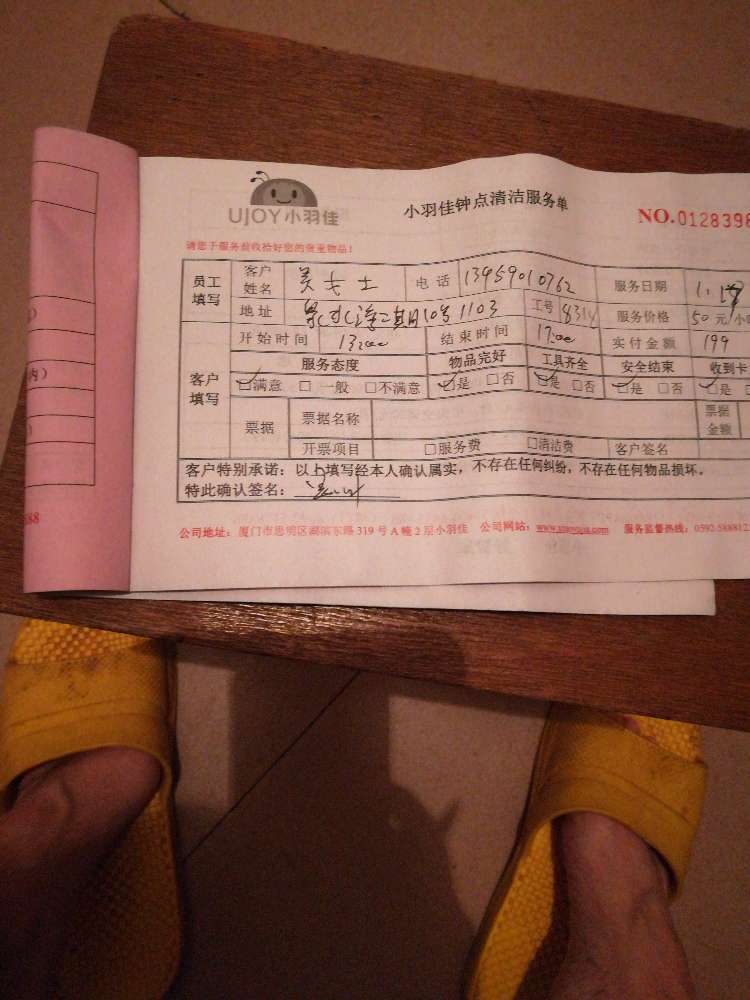 UJOY小羽佳
小羽佳钟点清洁服务单
NO.0128398
请您于服务前收拾好您的贵重物品！
员工填写 客户姓名 女士 电话 13959010762 服务日期 1.
地址 二期10号1103 工号 8314 服务价格 50元/小
客户填写 开始时间 13:00 结束时间 17:00 实付金额 199
服务态度 物品完好 工具齐全 安全结束 收到卡
☑满意 □一般 □不满意 ☑是 □否 ☑是 □否 ☑是 □否 ☑是
票据 票据名称 票据金额
开票项目 □服务费 □清洁费 客户签名
客户特别承诺：以上填写经本人确认属实，不存在任何纠纷，不存在任何物品损坏。
特此确认签名：
公司地址：厦门市思明区湖滨东路319号A幢2层小羽佳 公司网站：www.xiaoyujia.com 服务监督热线：0592-588812
内）
588